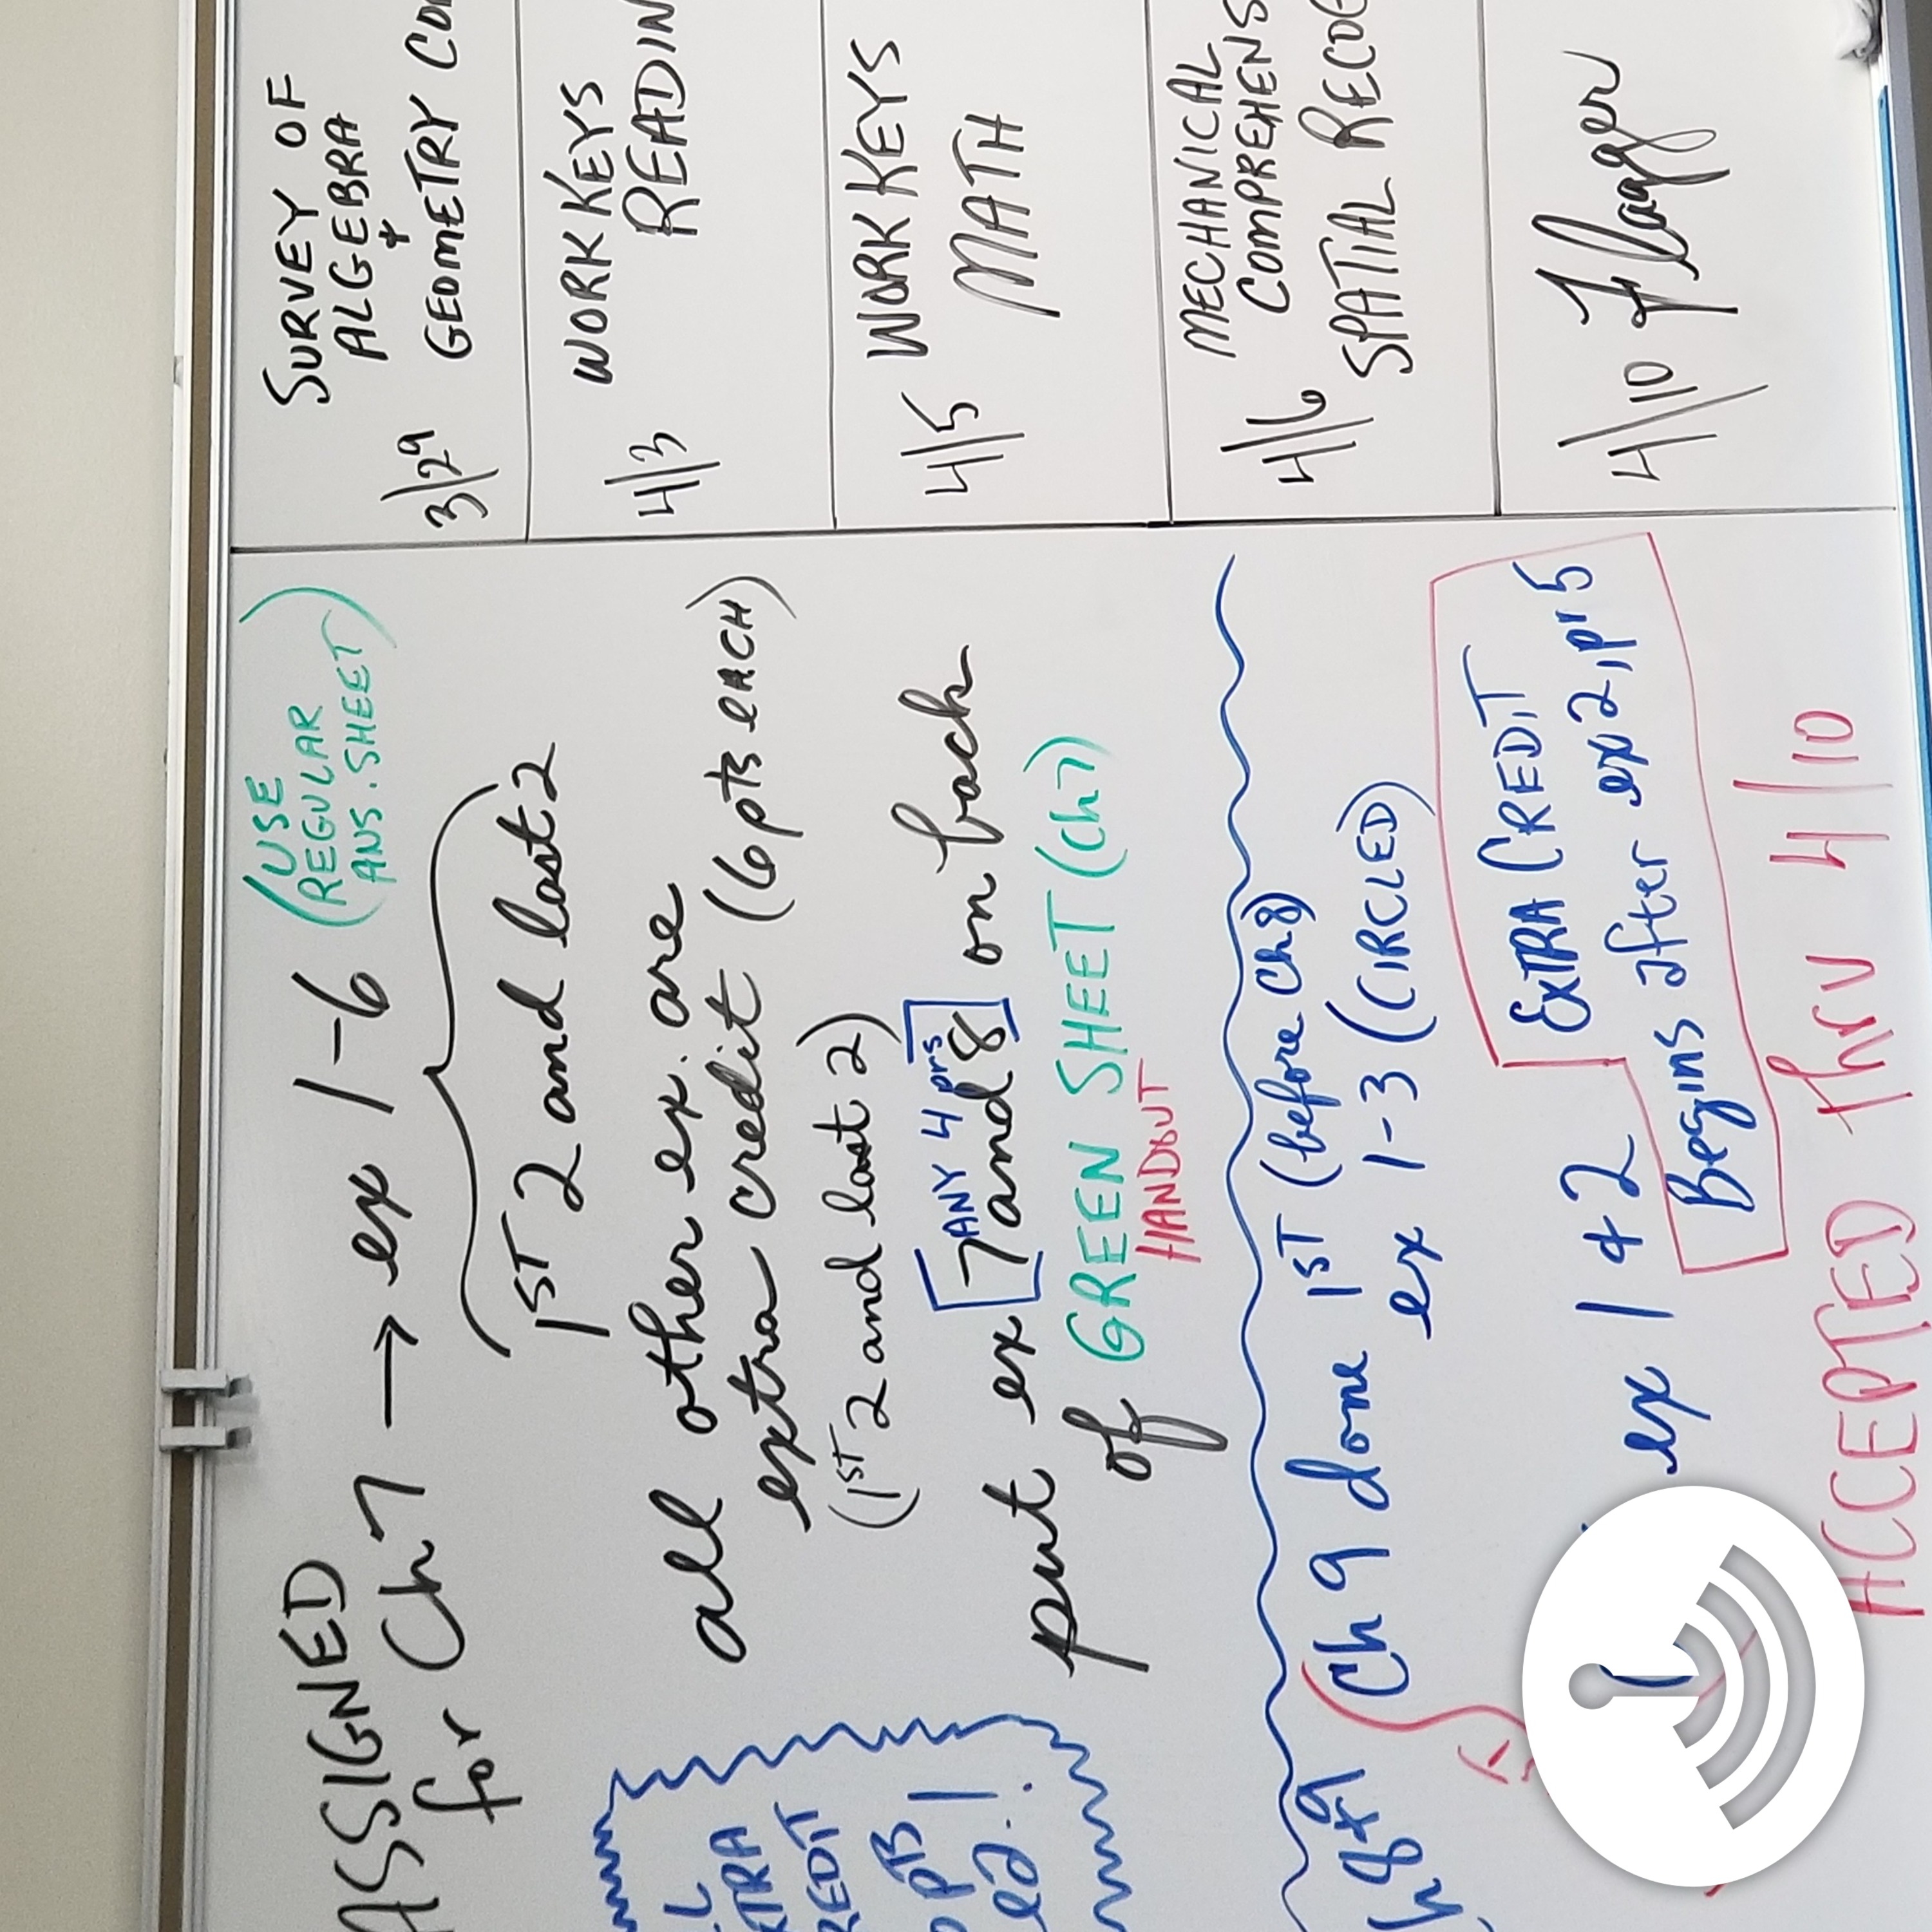 ASSIGNED
for Ch 7 → ex 1-6 (USE
REGULAR
ANS. SHEET)
1ST 2 and last 2
all other ex. are
extra credit (6 pts each)
(1ST 2 and last 2)
ANY 4 prs
put ex 7 and 8 on back
of GREEN SHEET (Ch 7)
HANDOUT
Ch 9 done 1ST (before Ch 8)
ex 1-3 (CIRCLED)
ex 1 + 2
EXTRA CREDIT
Begins after ex 2, p. 5
ACCEPTED thru 4/10
pts
ea.!
8+9
SURVEY OF
ALGEBRA
+
3/29 GEOMETRY
WORKKEYS
4/3
4/5 WORKKEYS
MATH
MECHANICAL
4/6
SPATIAL
4/10